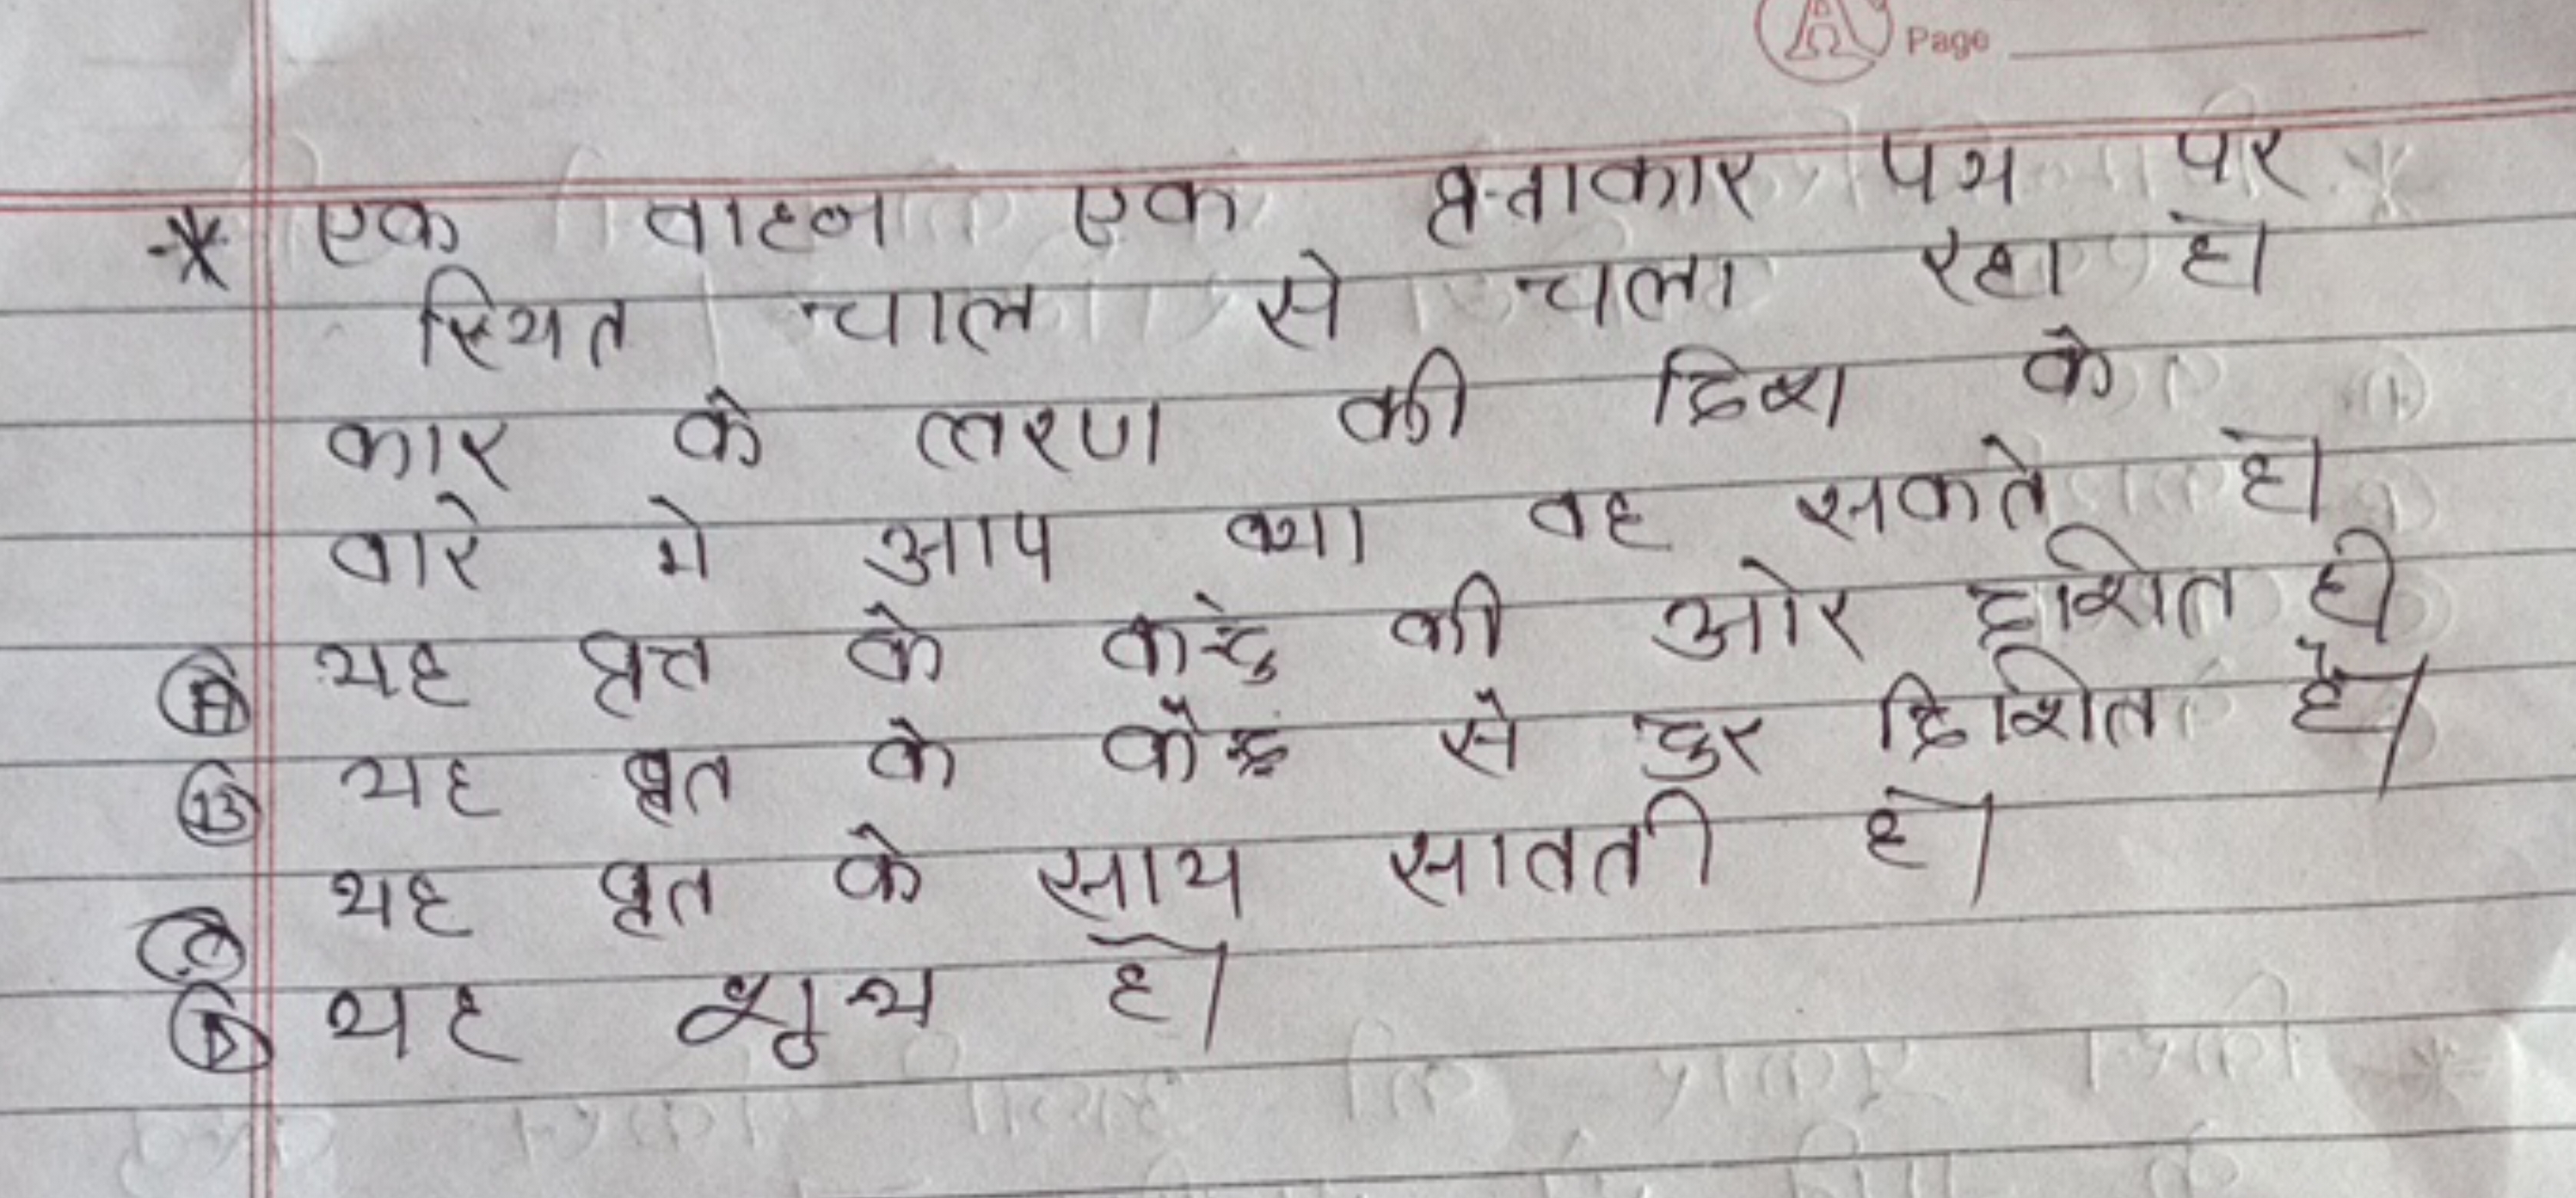 Page
* एक वाहन एक वृताकार पथ पर
स्थित चाल से चला रहा है
कार के त्वरण की दिशा के
वारे मे आप क्या वह सकते है
(A) यह वृत्त के केन्द्र की ओर दिशित है
(B) यह वृत के केंद्र से दुर दिशित है।
(C) यह वृत के साथ सातती है।
(D) यह शून्य है।